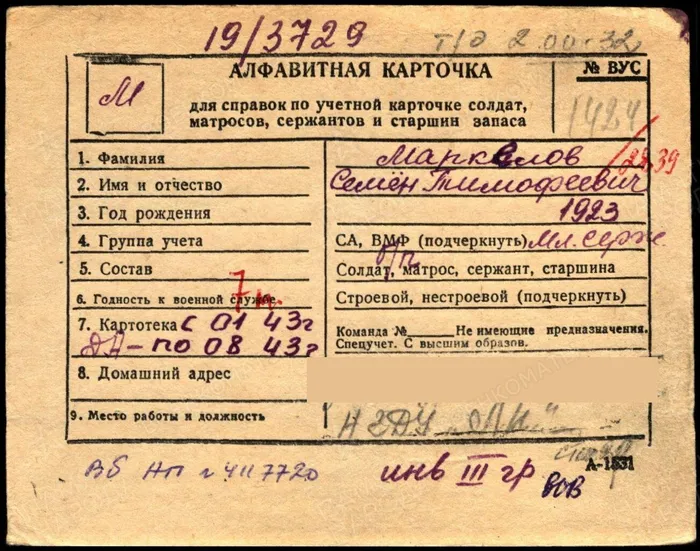 19/3729
т/о 2.00.32
АЛФАВИТНАЯ КАРТОЧКА
№ ВУС
М
для справок по учетной карточке солдат,
матросов, сержантов и старшин запаса
1. Фамилия
Маркелов
2. Имя и отчество
Семён Тимофеевич
3. Год рождения
1923
4. Группа учета
СА, ВМФ (подчеркнуть) Мл. серж.
5. Состав
Солдат, матрос, сержант, старшина
6. Годность к военной службе.
7 п.
Строевой, нестроевой (подчеркнуть)
7. Картотека с 01 43 г
по 08 43 г
Команда № Не имеющие предназначения.
Спецучет. С высшим образов.
8. Домашний адрес
9. Место работы и должность
НГДУ
А-1531
ВБ НП № 4117720
инв III гр
ВОВ